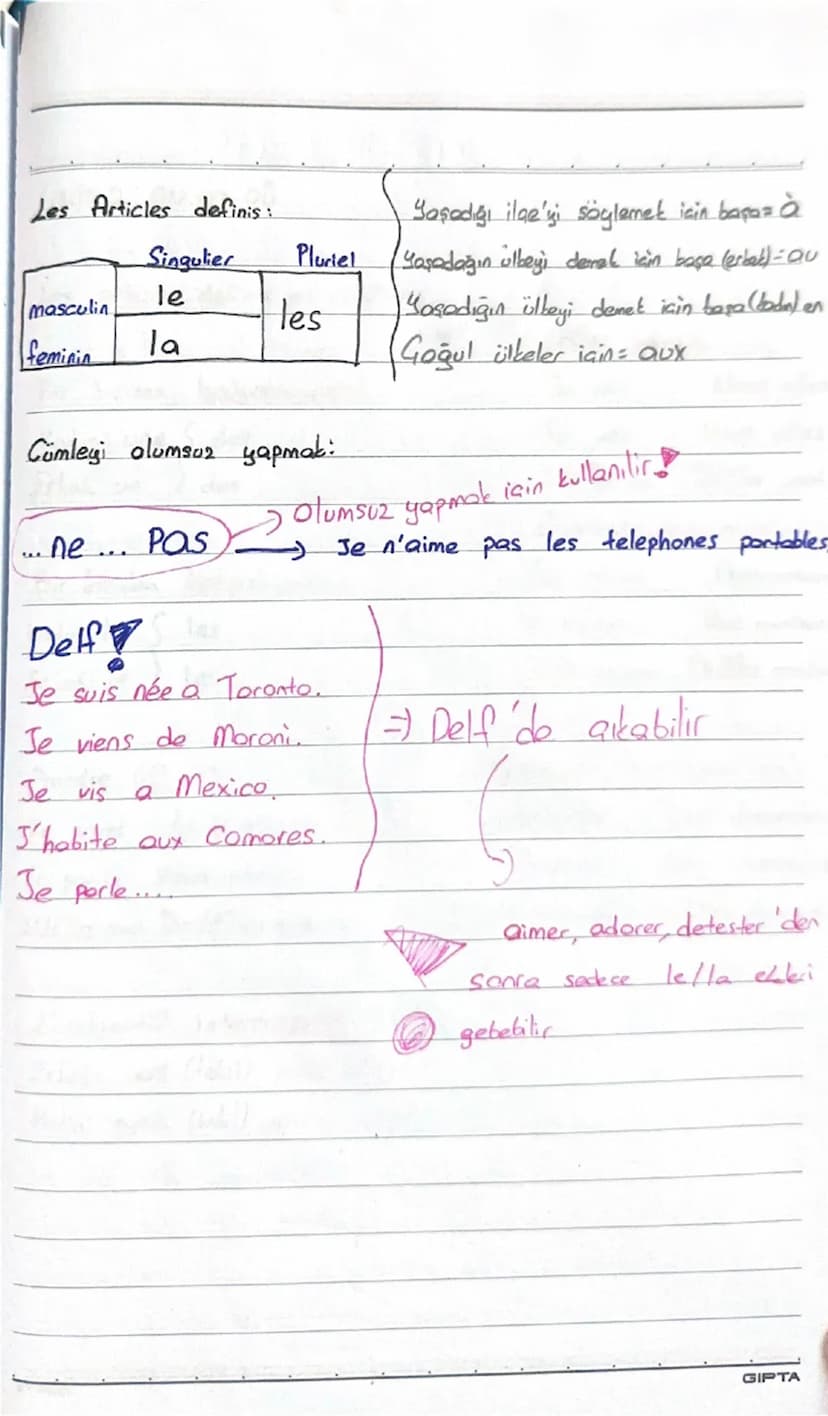 Les Articles definis:
Singulier Pluriel
masculin le les
feminin la
Yaşadığı ilçe'yi söylemek için başa= à
Yaşadağın ülkeyi demek için başa (erkek)=au
Yaşadığın ülkeyi demek için başa (kadın) en
Çoğul ülkeler için= aux
Cümleyi olumsuz yapmak:
Olumsuz yapmak için kullanılır!
... ne ... pas → Je n'aime pas les telephones portables
Delf!
Je suis née a Toronto.
Je viens de Moroni.
Je vis a Mexico.
J'habite aux Comores.
Je parle....
=) Delf'de çıkabilir
aimer, adorer, detester'den
sonra sadece le/la
gelebilir
GIPTA